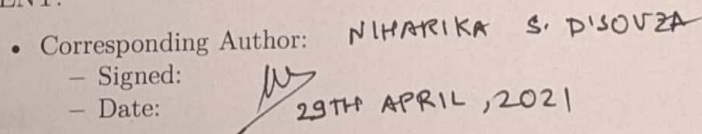 • Corresponding Author: NIHARIKA S. D'SOUZA
– Signed:
– Date: 29TH APRIL, 2021